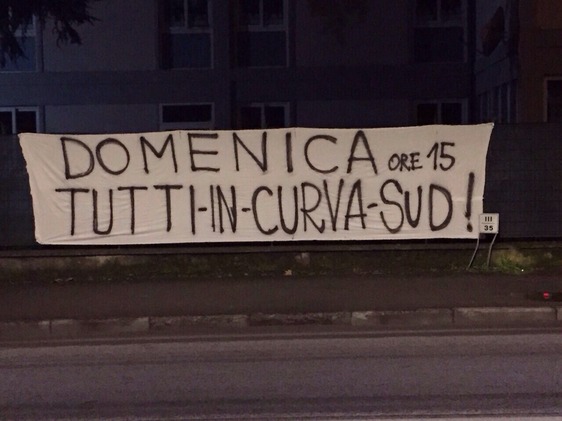 DOMENICA ORE 15
TUTTI-IN-CURVA-SUD!
III
35